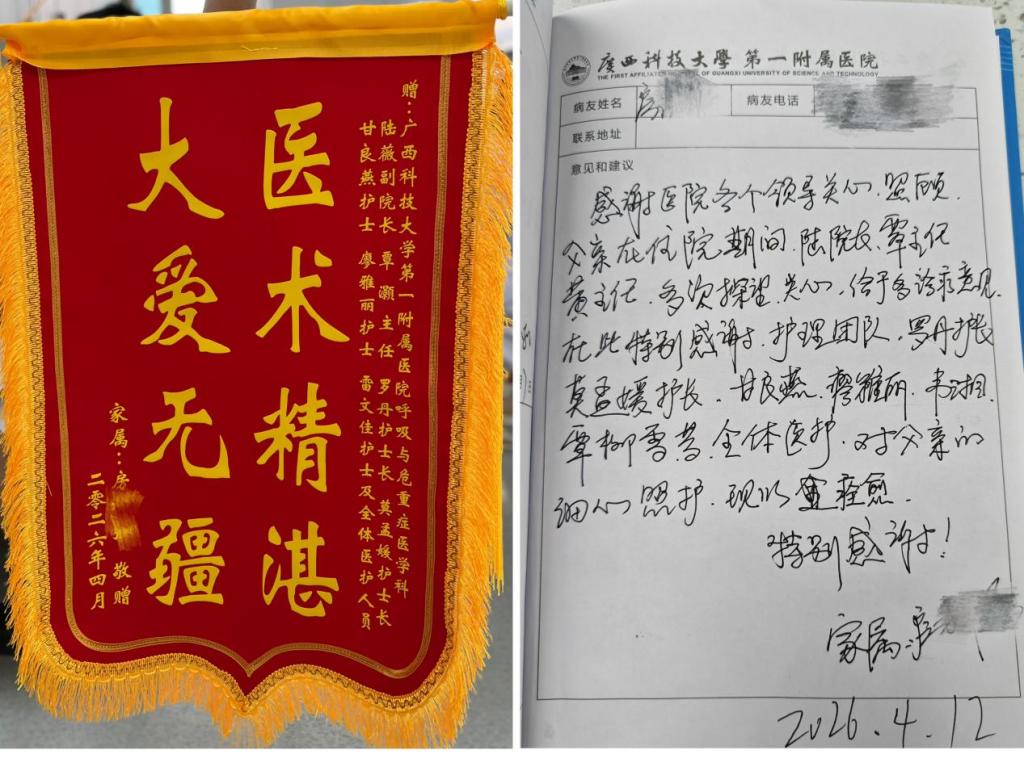 赠：广西科技大学第一附属医院呼吸与危重症医学科
陆薇副院长 覃灏主任 罗丹护士长 莫孟媛护士长
甘良燕护士 廖雅丽护士 雷文佳护士及全体医护人员
医术精湛
大爱无疆
家属：房 敬赠
二零二六年四月
广西科技大学第一附属医院
THE FIRST AFFILIATED HOSPITAL OF GUANGXI UNIVERSITY OF SCIENCE AND TECHNOLOGY
病友姓名 病友电话
联系地址
意见和建议
感谢医院各个领导关心.照顾.
父亲在住院期间.陆院长.覃主任
黄主任.多次探望.关心.给于多诊疗意见.
在此特别感谢.护理团队.罗丹护长
莫孟媛护长.甘良燕.廖雅丽.韦湘.
覃柳 全体医护.对父亲的
细心照护.现以 痊愈.
特别感谢!
家属:
2026.4.12